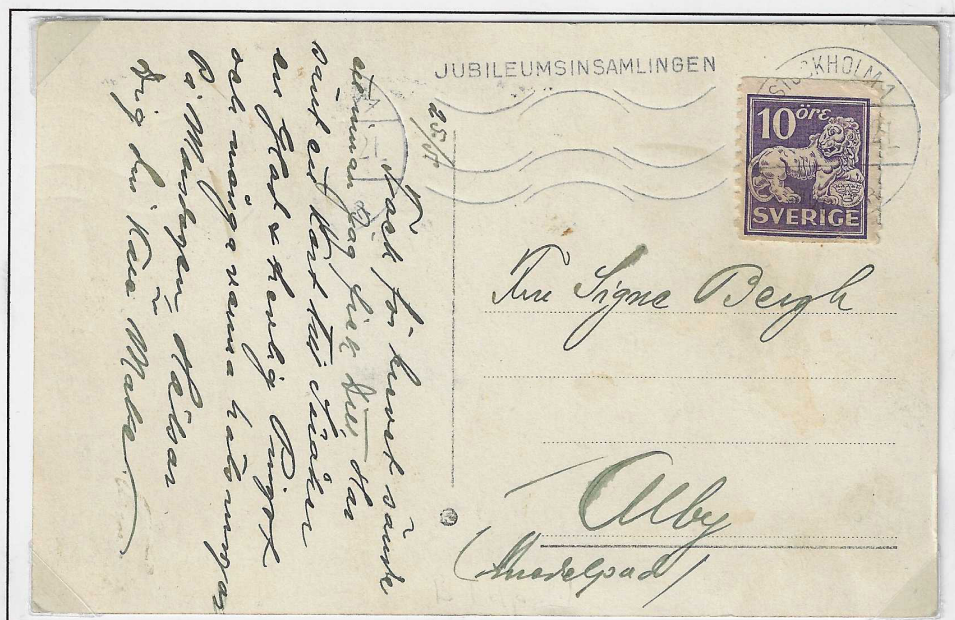 JUBILEUMSINSAMLINGEN
STOCKHOLM 1
10 öre
SVERIGE
Fru Signe Bergh
Alby
(Medelpad)
25/5
Tack för brevet sände
Jag fick Din
sänt ett kort till
en Glad & trevlig Pingst
och många varma hälsningar
Hälsar
Dig din kära Make